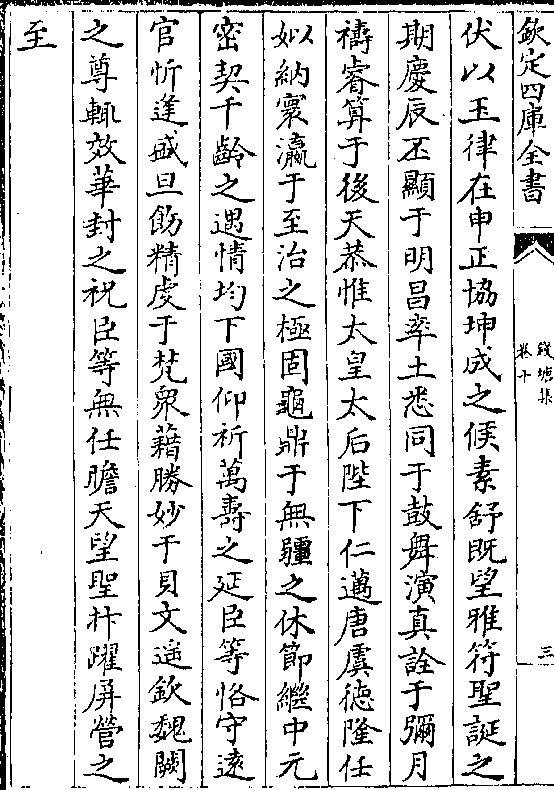 欽定四庫全書
錢塘集
卷十
三
伏以玉律在申正協坤成之候素舒既望雅符聖誕之
期慶辰丕顯于明昌率土悉同于鼓舞演真詮于彌月
禱睿算于後天恭惟太皇太后陛下仁邁唐虞徳隆任
姒納寰瀛于至治之極固龜鼎于無疆之休節繼中元
密契千齡之遇情均下國仰祈萬壽之延臣等恪守遠
官忻逢盛旦飭精虔于梵衆藉勝妙于貝文遥欽魏闕
之尊輒效華封之祝臣等無任瞻天望聖抃躍屏營之
至